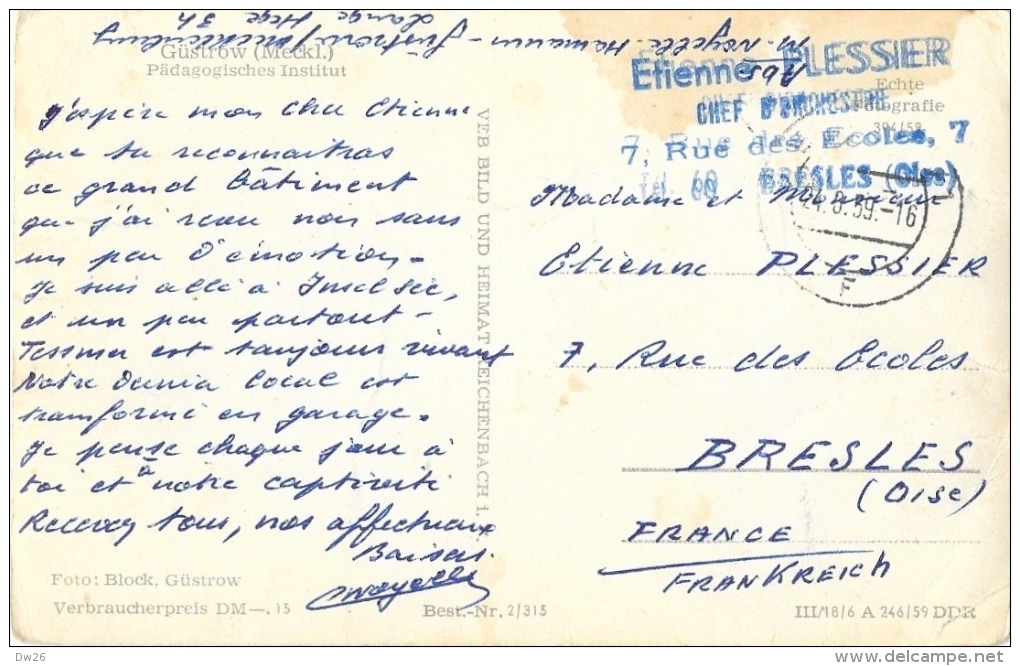 Abs M. Noyelle. Hamann - Güstrow/Mecklenburg
Lange Hege 3h
Güstrow (Meckl.)
Pädagogisches Institut
J'espère mon cher Etienne
que tu reconnaitras
ce grand bâtiment
que j'ai revu non sans
un peu d'émotion -
Je suis allé à Insel See,
et un peu partout -
Tessmer est toujours vivant
Notre Dania local est
transformé en garage.
Je pense chaque jour à
toi et à notre captivité
Recevez tous, nos affectueux
Baisers.
Noyelle
Foto: Block, Güstrow
Verbraucherpreis DM —.15
Best.-Nr. 2/315
VEB BILD UND HEIMAT REICHENBACH i.
Etienne PLESSIER
CHEF D'ORCHESTRE
7, Rue des Ecoles, 7
Tél. 60 BRESLES (Oise)
Echte
Fotografie
394/58
24.8.59.-16
Madame et Monsieur
Etienne PLESSIER
7, Rue des Ecoles
BRESLES
(Oise)
FRANCE
FRANKREICH
III/18/6 A 246/59 DDR
Dw26
www.delcampe.net